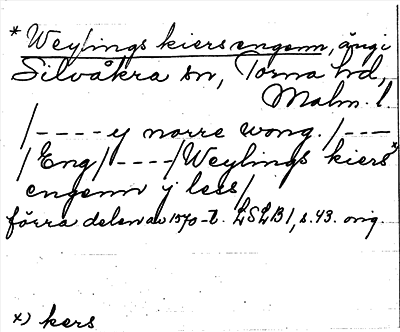 * Weylings kiers engenn, ängi
Silvåkra sn, Torna hd,
Malm. l
/----y norre wong./---
/Eng/----/Weylings kiers*
engenn y less/
förra delen av 1570-t. LSLB1, s. 43. orig.
x) kers